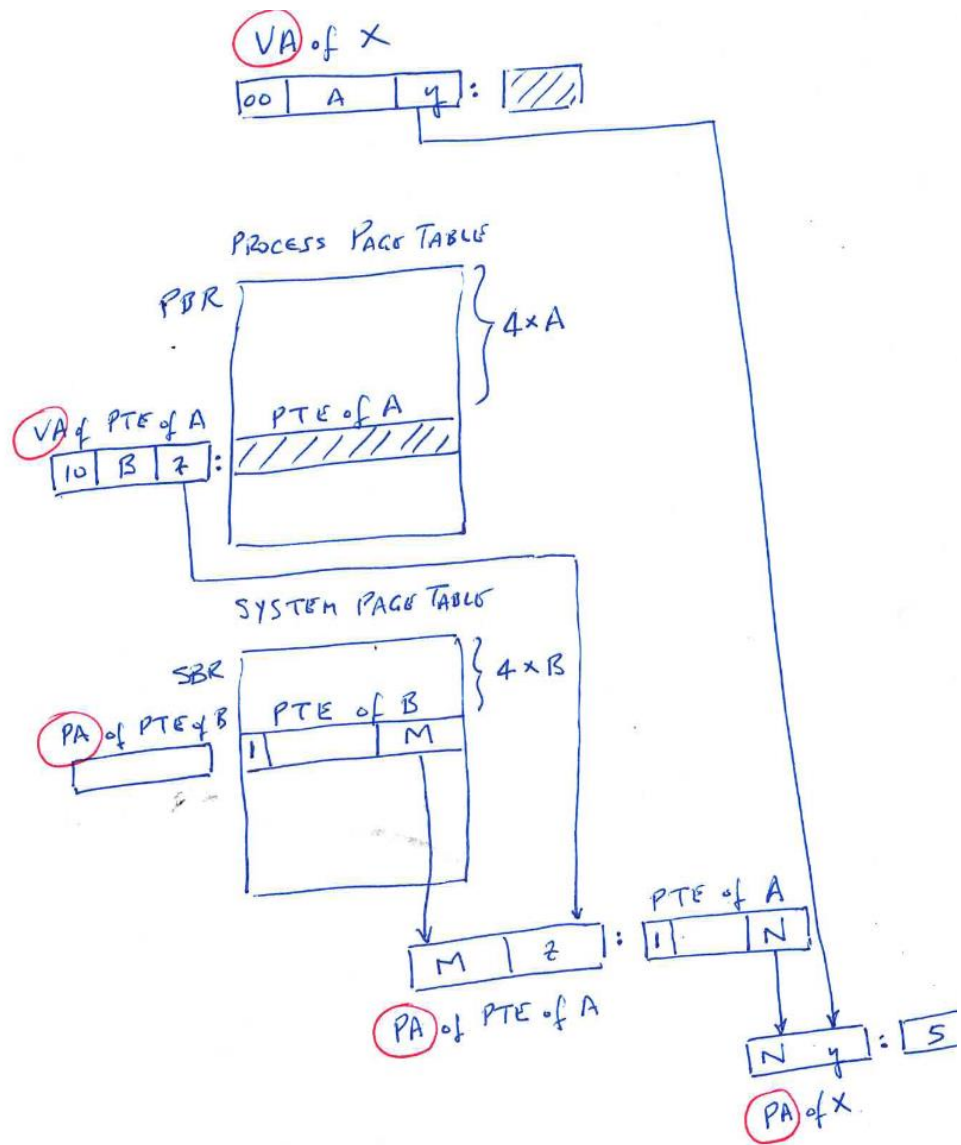 VA of X
00 A y :
PROCESS PAGE TABLE
PBR
4×A
PTE of A
VA of PTE of A
10 B z :
SYSTEM PAGE TABLE
SBR
4×B
PTE of B
PA of PTE of B
1 M
PTE of A
M z : 1 N
PA of PTE of A
N y : 5
PA of X